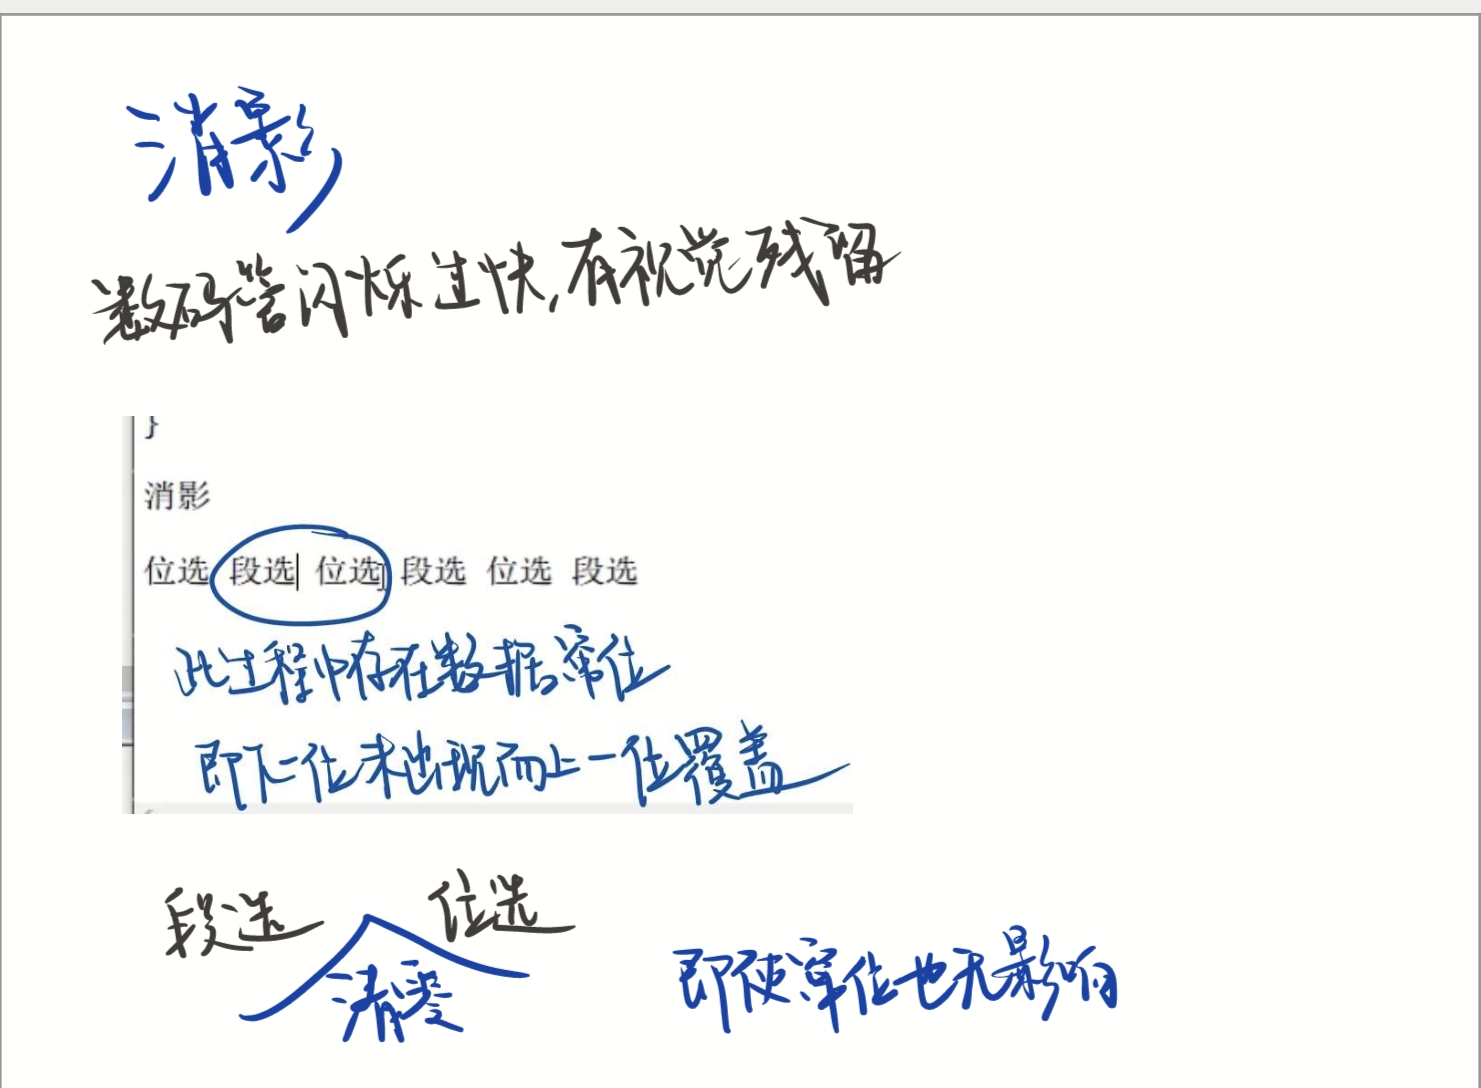 消影
数码管闪烁过快,有视觉残留
}
消影
位选 段选 位选 段选 位选 段选
此过程中存在数据窜位
即下一位未出现而上一位覆盖
段选 位选
清零
即使窜位也无影响